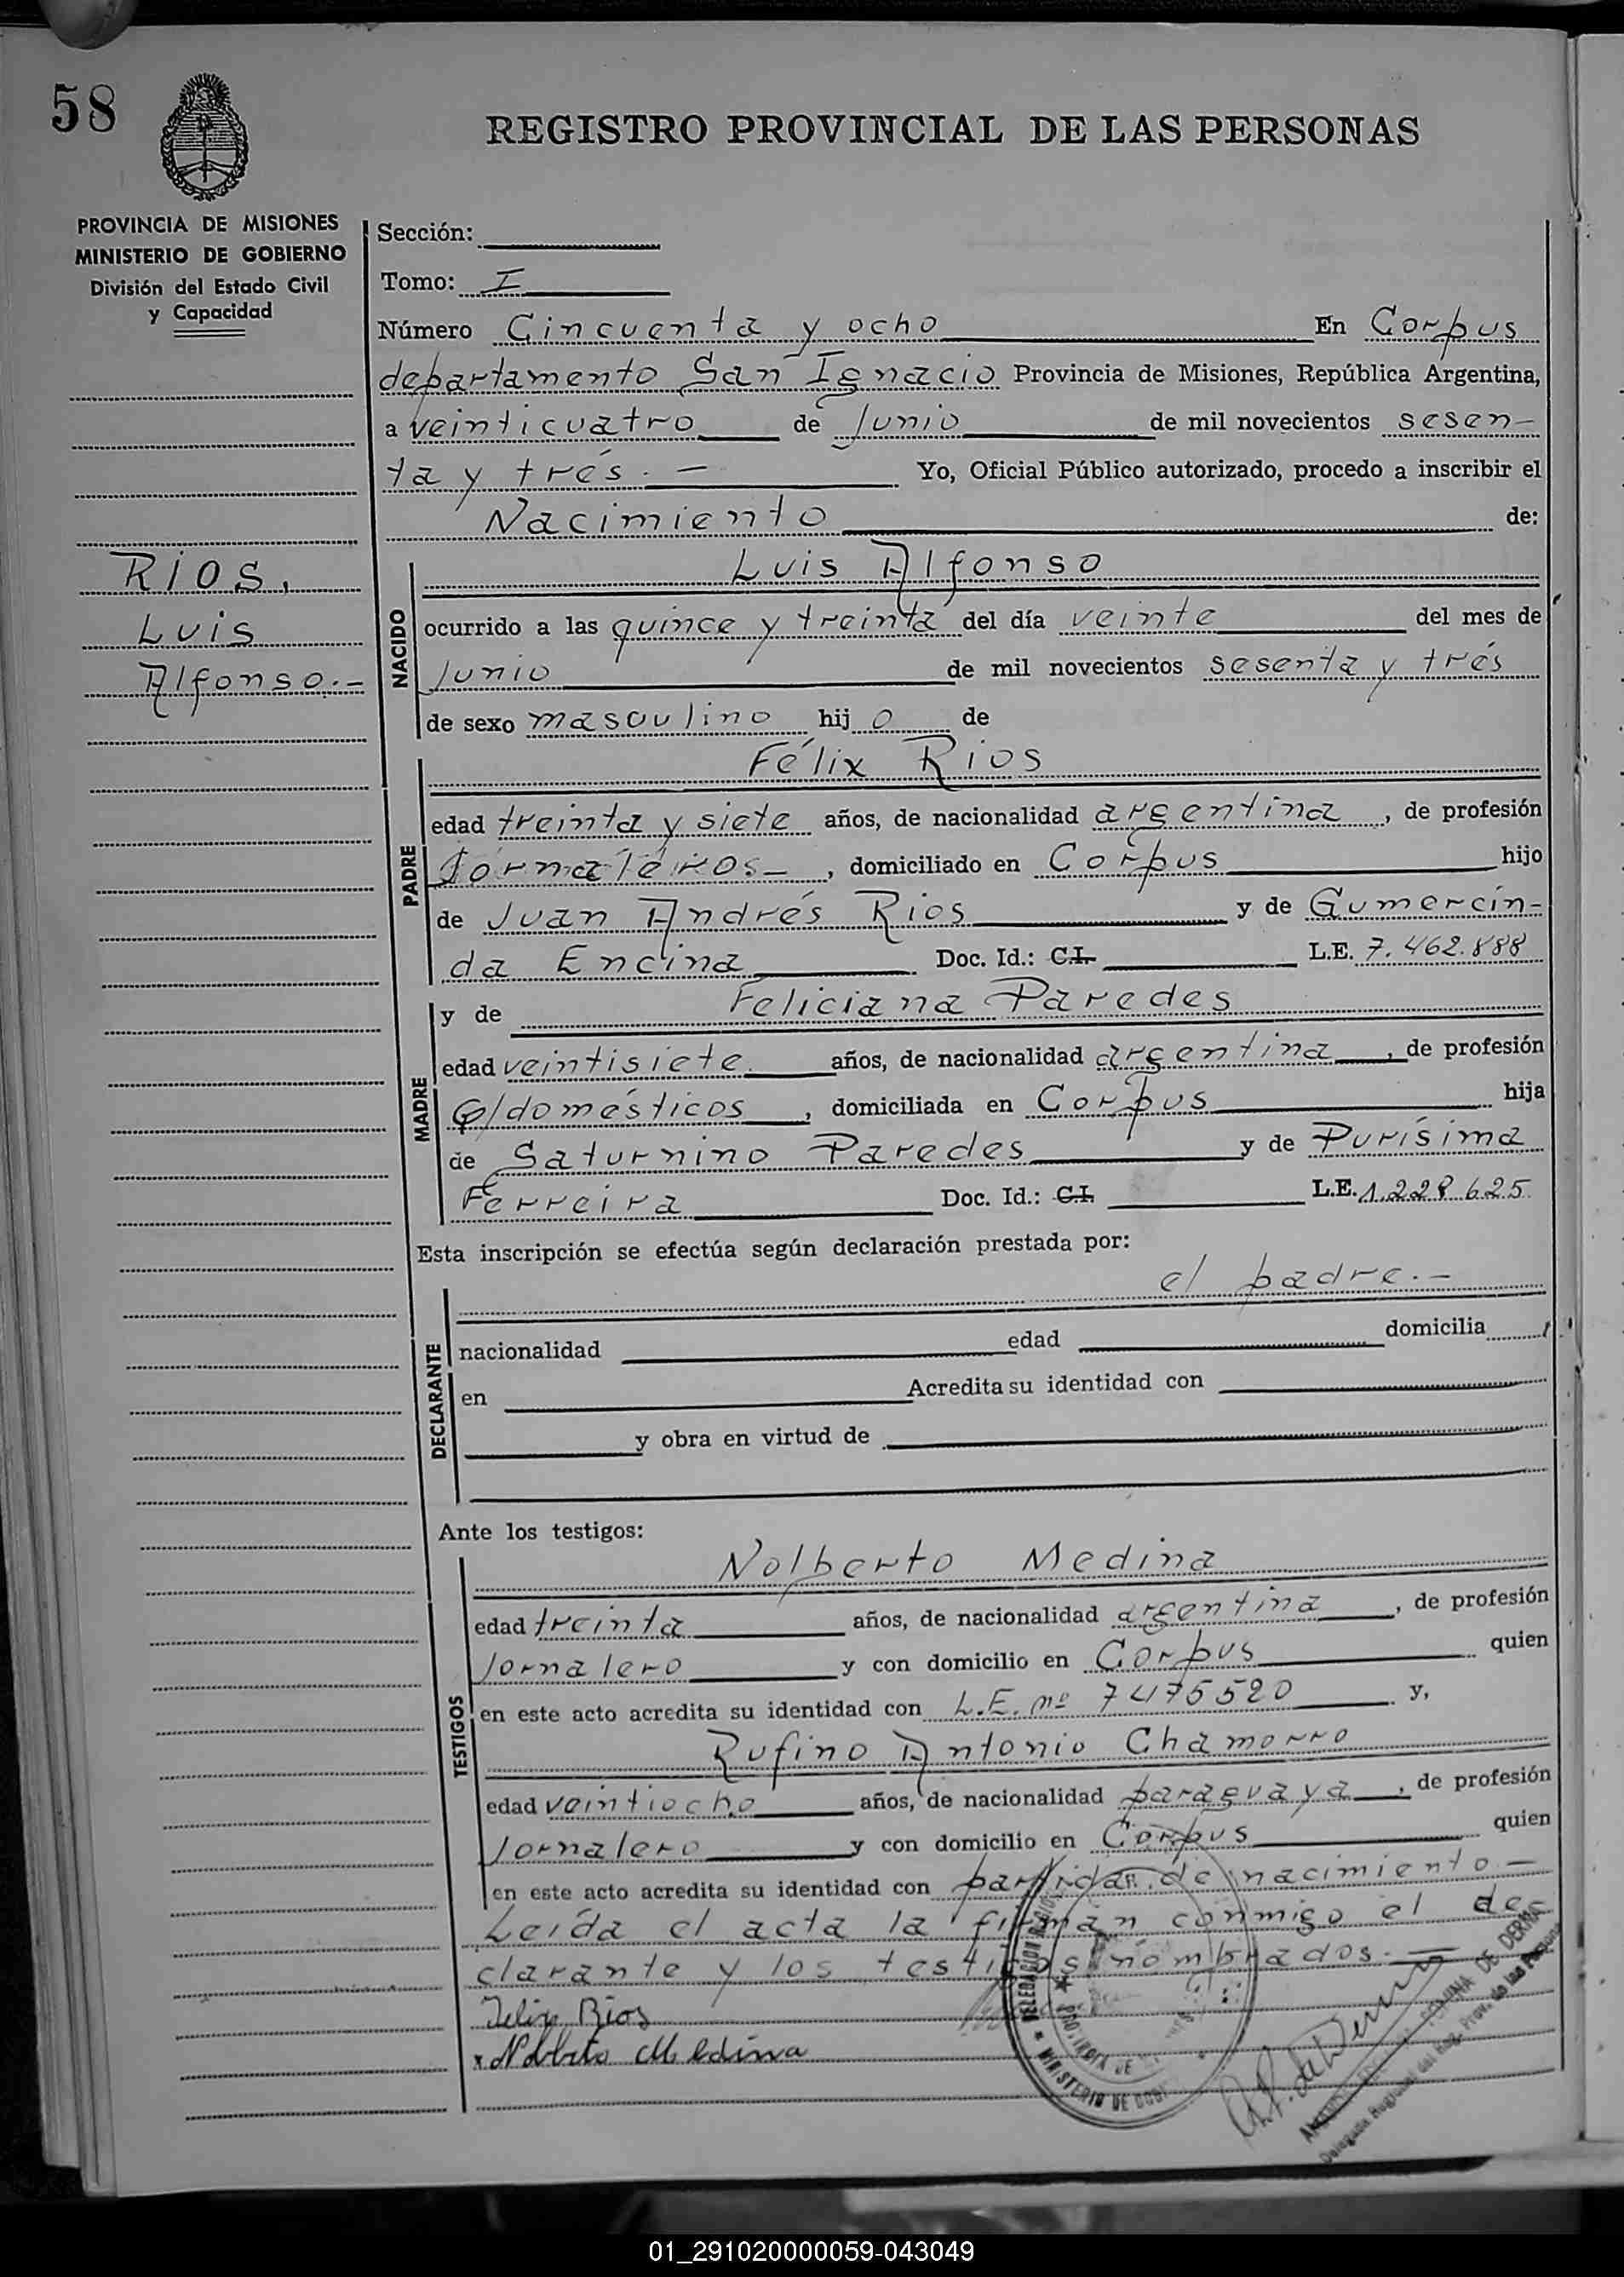 58
REGISTRO PROVINCIAL DE LAS PERSONAS
PROVINCIA DE MISIONES
MINISTERIO DE GOBIERNO
División del Estado Civil
y Capacidad
RIOS,
Luis
Alfonso.-
Sección:
Tomo: I
Número Cincuenta y ocho En Corpus
departamento San Ignacio Provincia de Misiones, República Argentina,
a veinticuatro de Junio de mil novecientos sesen-
ta y trés.- Yo, Oficial Público autorizado, procedo a inscribir el
Nacimiento de:
NACIDO
Luis Alfonso
ocurrido a las quince y treinta del día veinte del mes de
Junio de mil novecientos sesenta y trés
de sexo masculino hij o de
PADRE
Félix Rios
edad treinta y siete años, de nacionalidad argentina, de profesión
, domiciliado en Corpus hijo
de Juan Andrés Rios y de Gumercin-
da Encina Doc. Id.: C.I. L.E. 7.462.888
MADRE
y de Feliciana Paredes
edad veintisiete años, de nacionalidad argentina, de profesión
Q/domésticos, domiciliada en Corpus hija
de Saturnino Paredes y de Purísima
Ferreira Doc. Id.: C.I. L.E. 1.228.625
Esta inscripción se efectúa según declaración prestada por:
DECLARANTE
el padre.-
nacionalidad edad domicilia
en Acredita su identidad con
y obra en virtud de
Ante los testigos:
TESTIGOS
Nolberto Medina
edad treinta años, de nacionalidad argentina, de profesión
Jornalero y con domicilio en Corpus quien
en este acto acredita su identidad con L.E. nº 7475520 y,
Rufino Antonio Chamorro
edad veintiocho años, de nacionalidad paraguaya, de profesión
Jornalero y con domicilio en Corpus quien
en este acto acredita su identidad con partida de nacimiento-
Leída el acta la firman conmigo el de-
clarante y los testigos nombrados.-
Felix Rios
Nolberto Medina
MINISTERIO DE
DE DERMA
Prov. de las
01_291020000059-043049